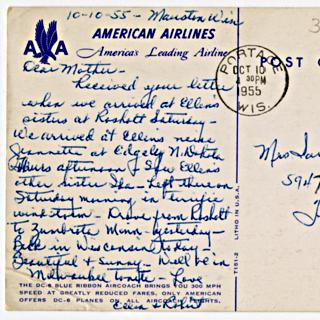 10-10-55 - Mauston Wis
AMERICAN AIRLINES
America's Leading Airline
AA
Dear Mother -
Received your letter
when we arrived at Ellen's
sisters at Rosholt Saturday -
We arrived at Ellen's niece
Jeannette at Edgeley N. Dakota
Thurs afternoon & saw Ellen's
other sister Ida - Left there on
Saturday morning in terrific
wind storm - Drove from Rosholt
to Zumbrota Minn - yesterday -
Back in Wisconsin today -
Beautiful & Sunny - Will be in
Milwaukee tonite - Love
Ellen & Robert
THE DC-6 BLUE RIBBON AIRCOACH BRINGS YOU 300 MPH
SPEED AT GREATLY REDUCED FARES. ONLY AMERICAN
OFFERS DC-6 PLANES ON ALL AIRCOACH FLIGHTS.
T151-2
LITHO IN U.S.A.
PORTAGE
OCT 10
4 30PM
1955
WIS.
POST C
3
Mrs
597